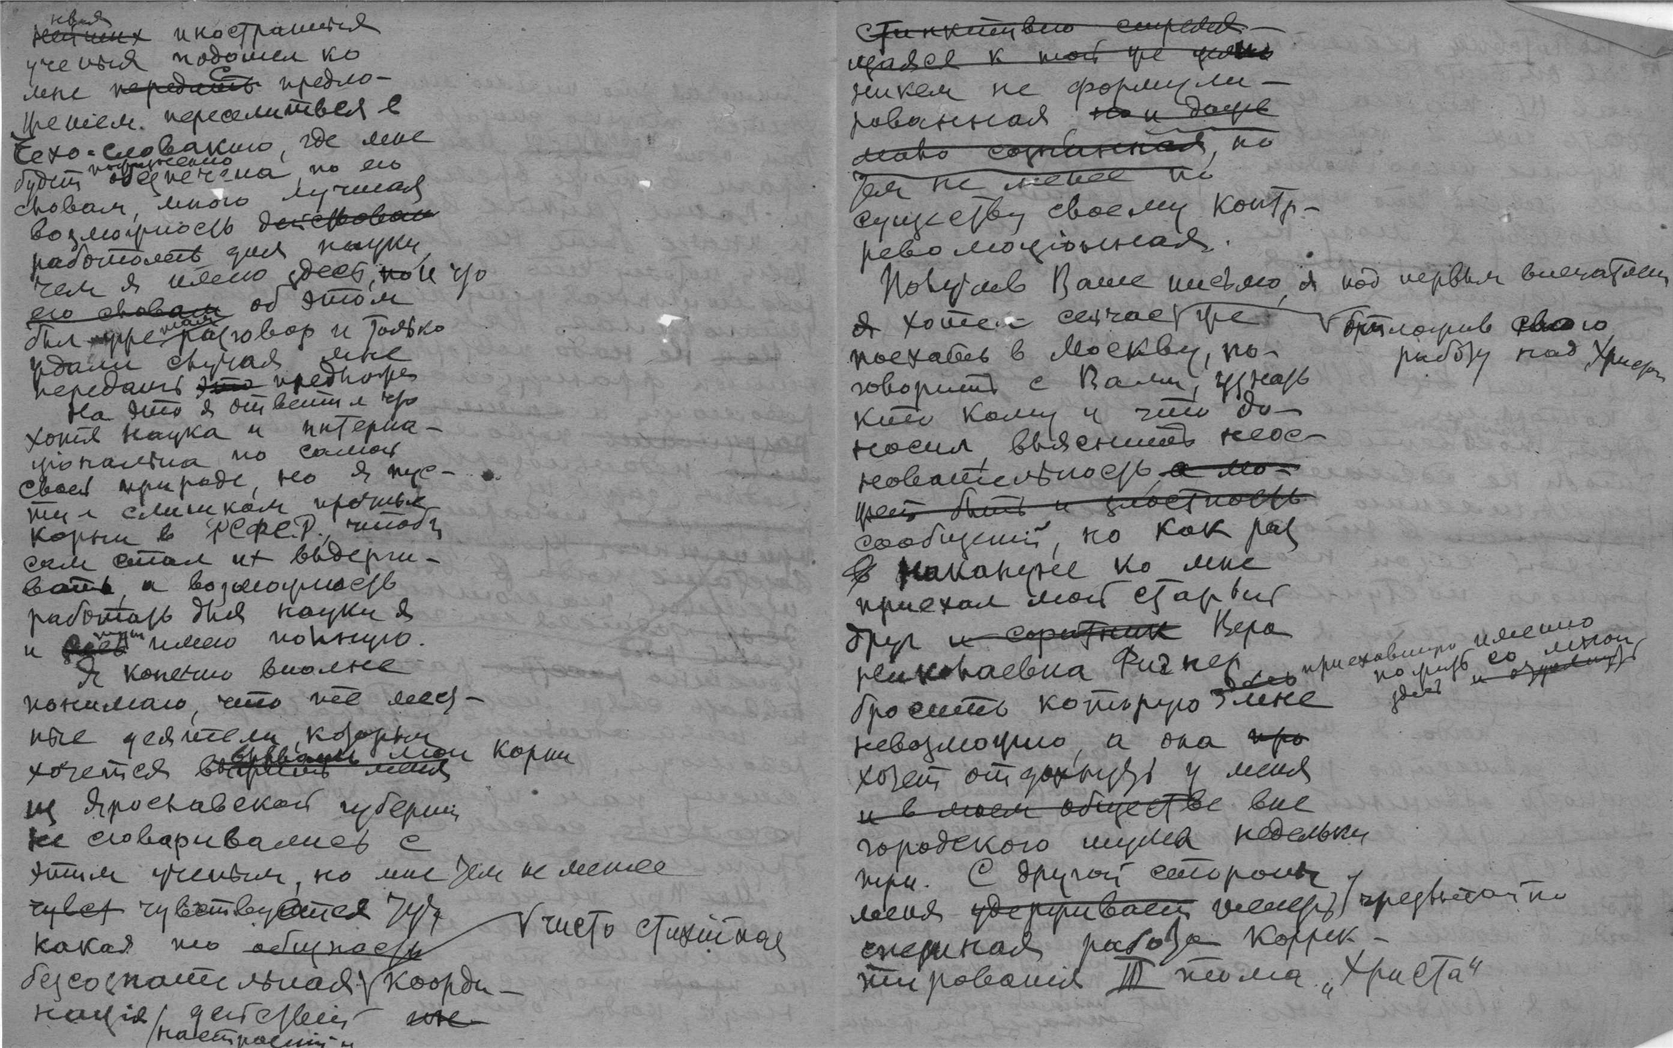 ный
нейших иностранный
ученый подошел ко
мне передать с предло-
жением переселиться в
Чехо-Словакию, где мне
будет обеспечена, по его
словам, много лучшая
возможность действовать
работать для науки,
чем я имею здесь, но и что
его словам об этом
был уже там разговор и только
ждали случая мне
передать это предлож
На это я ответил что
хотя наука и интерна-
ціональна по самой
своей природе, но я пус-
тил слишком прочные
корни в РСФСР, чтобы
сам стал их выдерги-
вать, а возможность
работать для науки я
и имею полную.
Я конечно вполне
понимаю, что те мест-
ные деятели, которым
хочется вырвать мои корни
меня
из Ярославской губернии
не сговаривались с
этим ученым, но мне тем не менее
чувст чувствуется тут
какая то общность
√ чисто стихійная
безсознательная √ коорди-
нація действий
/настроений и
стинктивно стремя-
щаяся к той же цели
никем не формули-
рованная но и даже
мало сознанная, но
тем не менее по
существу своему контр-
революціонная.
Получив Ваше письмо, я под первым впечатлен
я хотел сейчас же √ отложив свою
работу над Христ
поехать в Москву, по-
говорить с Вами, узнать
кто кому и что до-
носил, выяснить неос-
новательность а мо-
жет быть и злостность
сообщений, но как раз
в накануне ко мне
приехал мой старый
друг и соратник Вера
Николаевна Фигнер, приехавшую именно
пожить со мной
здесь и отдохнуть
бросить которую здесь мне
невозможно, а она про
хочет отдохнуть у меня
и в моем обществе вне
городского шума недельки
три. С другой стороны
меня удерживает теперь √ чрезвычайно
спешная работа коррек-
тированія III тома „Христа“